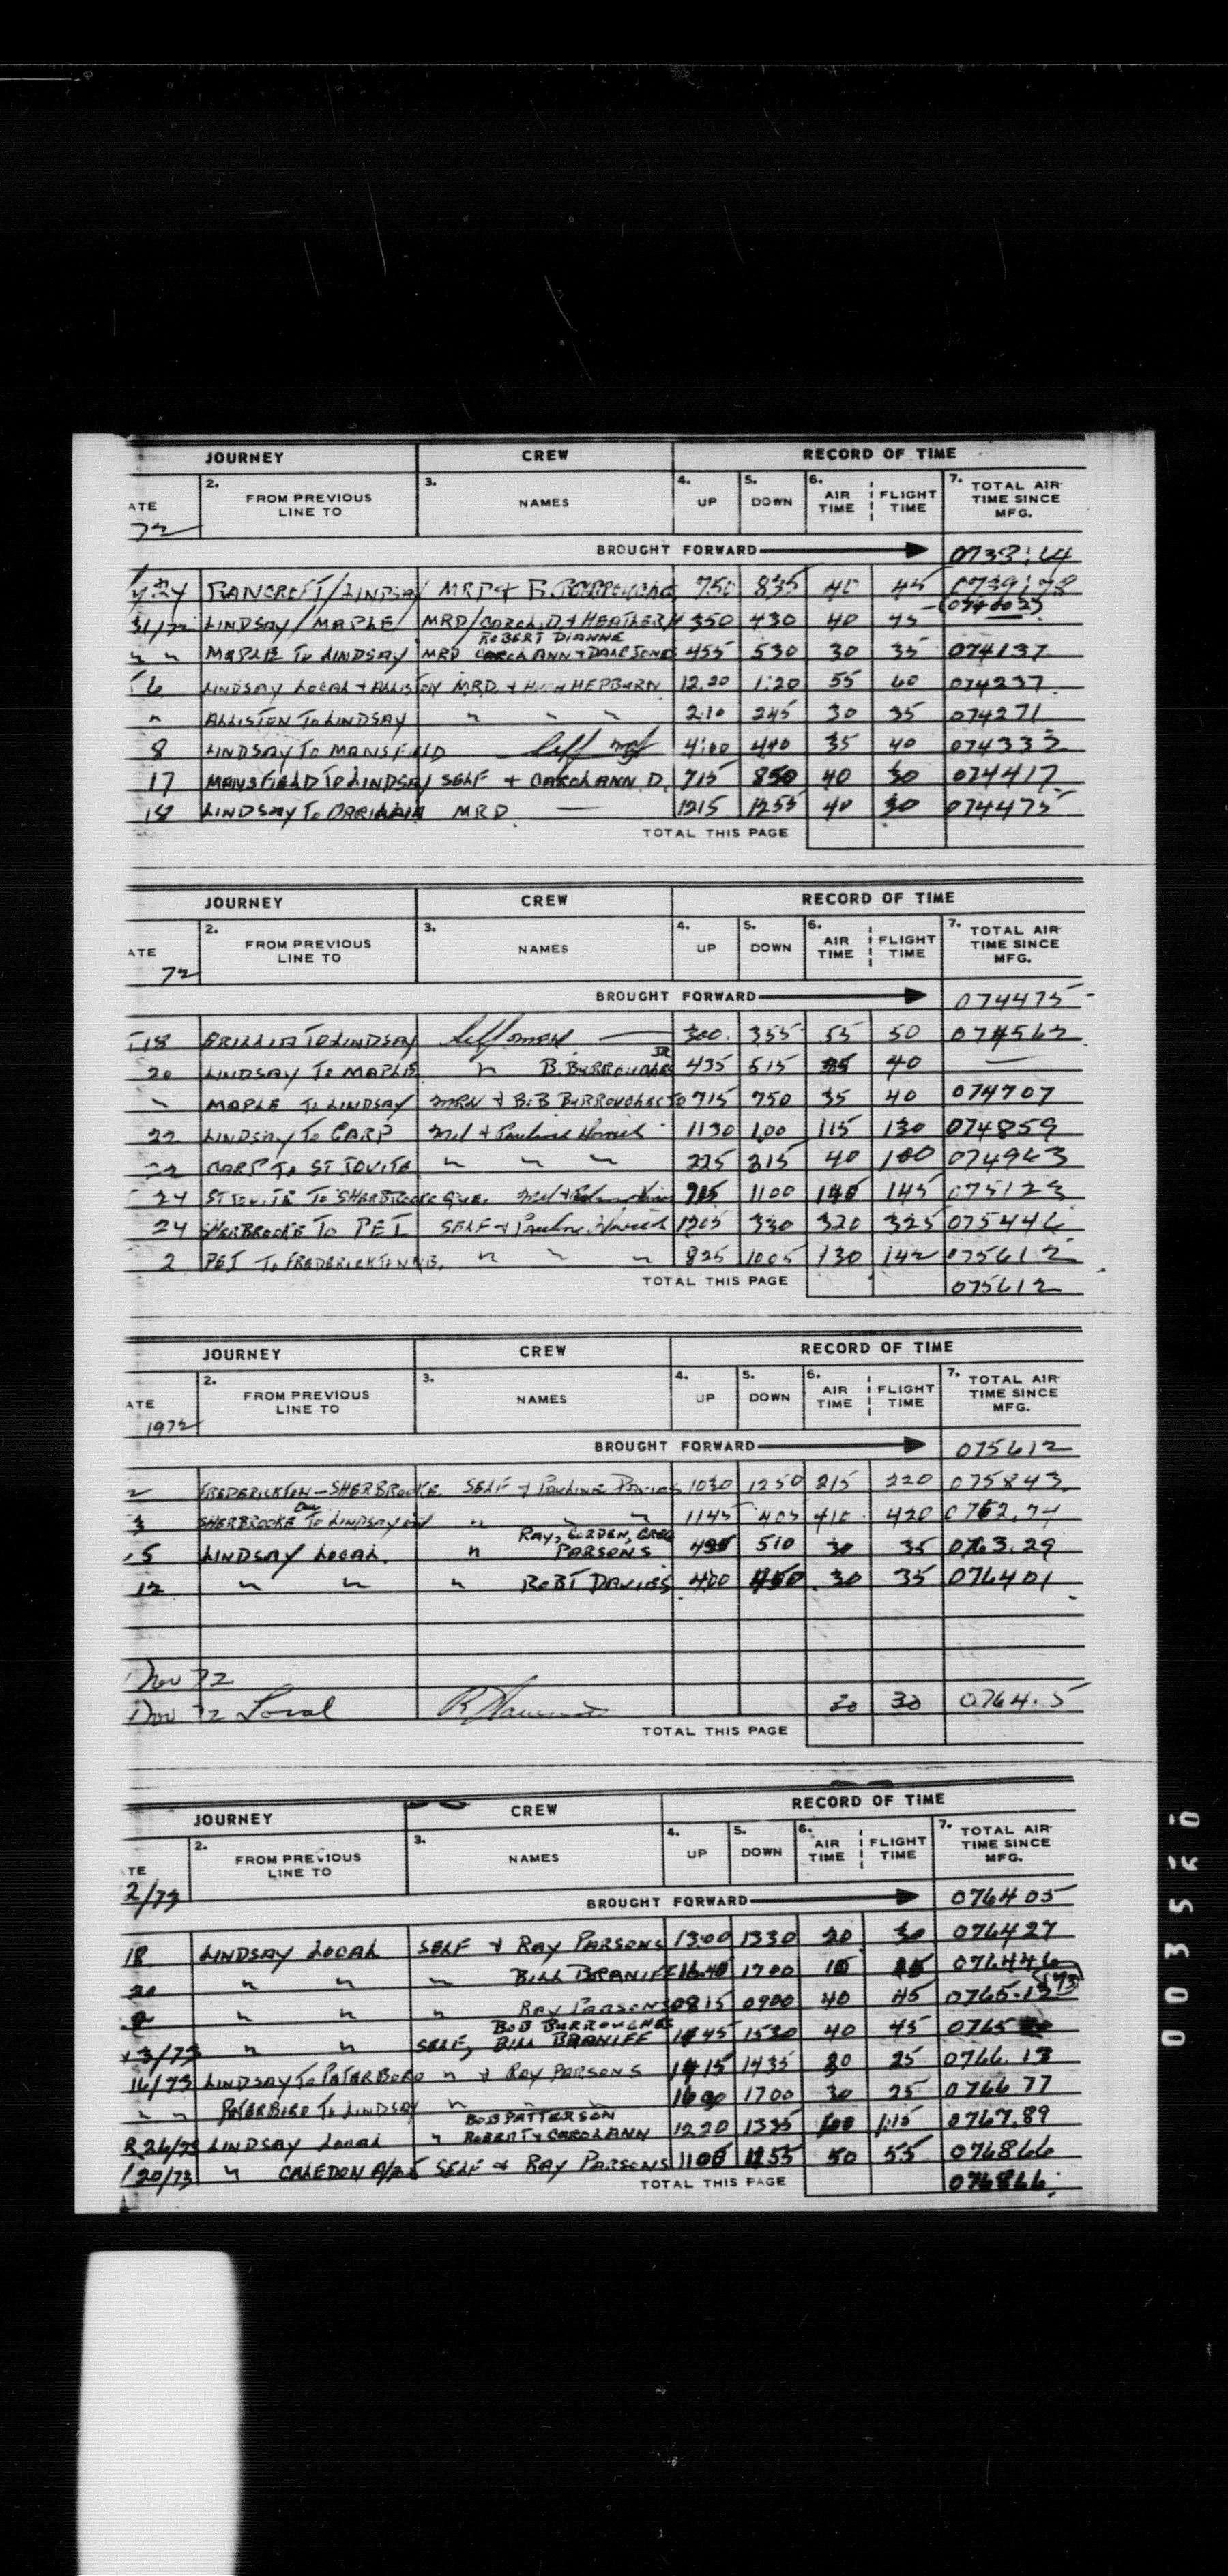 JOURNEY CREW RECORD OF TIME
ATE 2. FROM PREVIOUS LINE TO 3. NAMES 4. UP 5. DOWN 6. AIR TIME FLIGHT TIME 7. TOTAL AIR TIME SINCE MFG.
72
BROUGHT FORWARD 0738:64
24 BANCROFT/LINDSAY MRD + B. BURROUGHS 750 835 40 45 0739:78
31/72 LINDSAY/MAPLE/ MRD/CAROL.D.+HEATHER H 350 430 40 45
ROBERT DIANNE
" " MAPLE TO LINDSAY MRD CAROLANN + DALE JONES 455 530 30 35 074137
6 LINDSAY LOCAL + ALLISTON MRD + HEPBURN 12.20 1:20 55 60 074237
" ALLISTON TO LINDSAY " " " 2:10 245 30 35 074271
8 LINDSAY TO MANSFIELD Self 4:00 440 35 40 074333
17 MANSFIELD TO LINDSAY SELF + CAROLANN D. 715 850 40 30 074417
18 LINDSAY TO MRD — 1215 1255 40 30 074475
TOTAL THIS PAGE
JOURNEY CREW RECORD OF TIME
ATE 2. FROM PREVIOUS LINE TO 3. NAMES 4. UP 5. DOWN 6. AIR TIME FLIGHT TIME 7. TOTAL AIR TIME SINCE MFG.
72
BROUGHT FORWARD 074475
18 ORILLIA TO LINDSAY Self — 300. 355 55 50 074562
JR
20 LINDSAY TO MAPLE " B. BURROUGHS 435 515 35 40 —
" MAPLE TO LINDSAY MRD + BOB BURROUGHS 715 750 35 40 074707
22 LINDSAY TO CARP Mel + Pauline 1130 1.00 115 130 074859
22 CARP TO ST JOVITE " " " 225 315 40 100 074963
24 ST JOVITE TO SHERBROOKE QUE. 915 1100 140 145 075123
24 SHERBROOKE TO PEI SELF + Pauline 1205 330 320 325 075446
2 PEI TO FREDERICKTON NB. " " " 825 1005 130 142 075612
TOTAL THIS PAGE 075612
JOURNEY CREW RECORD OF TIME
ATE 2. FROM PREVIOUS LINE TO 3. NAMES 4. UP 5. DOWN 6. AIR TIME FLIGHT TIME 7. TOTAL AIR TIME SINCE MFG.
1972
BROUGHT FORWARD 075612
2 FREDERICKTON – SHERBROOKE SELF + Pauline Davies 1030 1250 215 220 075843
3 SHERBROOKE TO LINDSAY " " " 1145 405 410 420 0762.74
RAY, GORDEN, GREG
5 LINDSAY LOCAL. " PARSONS 435 510 30 35 0763.29
12 " " " ROBT DAVIES 400 450 30 35 076401
Nov 72
Nov 72 Local 30 30 0764.5
TOTAL THIS PAGE
JOURNEY CREW RECORD OF TIME
TE 2. FROM PREVIOUS LINE TO 3. NAMES 4. UP 5. DOWN 6. AIR TIME FLIGHT TIME 7. TOTAL AIR TIME SINCE MFG.
2/73
BROUGHT FORWARD 076405
18 LINDSAY LOCAL SELF + RAY PARSONS 1300 1330 20 30 076427
20 " " " BILL BRANIFF 1640 1700 15 25 076446
" " " RAY PARSONS 0815 0900 40 45 0765.13
BOB BURROUGHS
3/73 " " SELF, BILL BRANIFF 1445 1530 40 45 0765
16/73 LINDSAY TO PETERBORO " + RAY PARSONS 1415 1435 20 25 0766.13
" " PETERBORO TO LINDSAY " " " 1630 1700 30 25 0766 77
BOB PATTERSON
R 26/73 LINDSAY LOCAL " ROBERT + CAROLANN 1220 1335 100 1:15 0767.89
20/73 " CALEDON SELF & RAY PARSONS 1105 1155 50 55 076866
TOTAL THIS PAGE 076866
003560